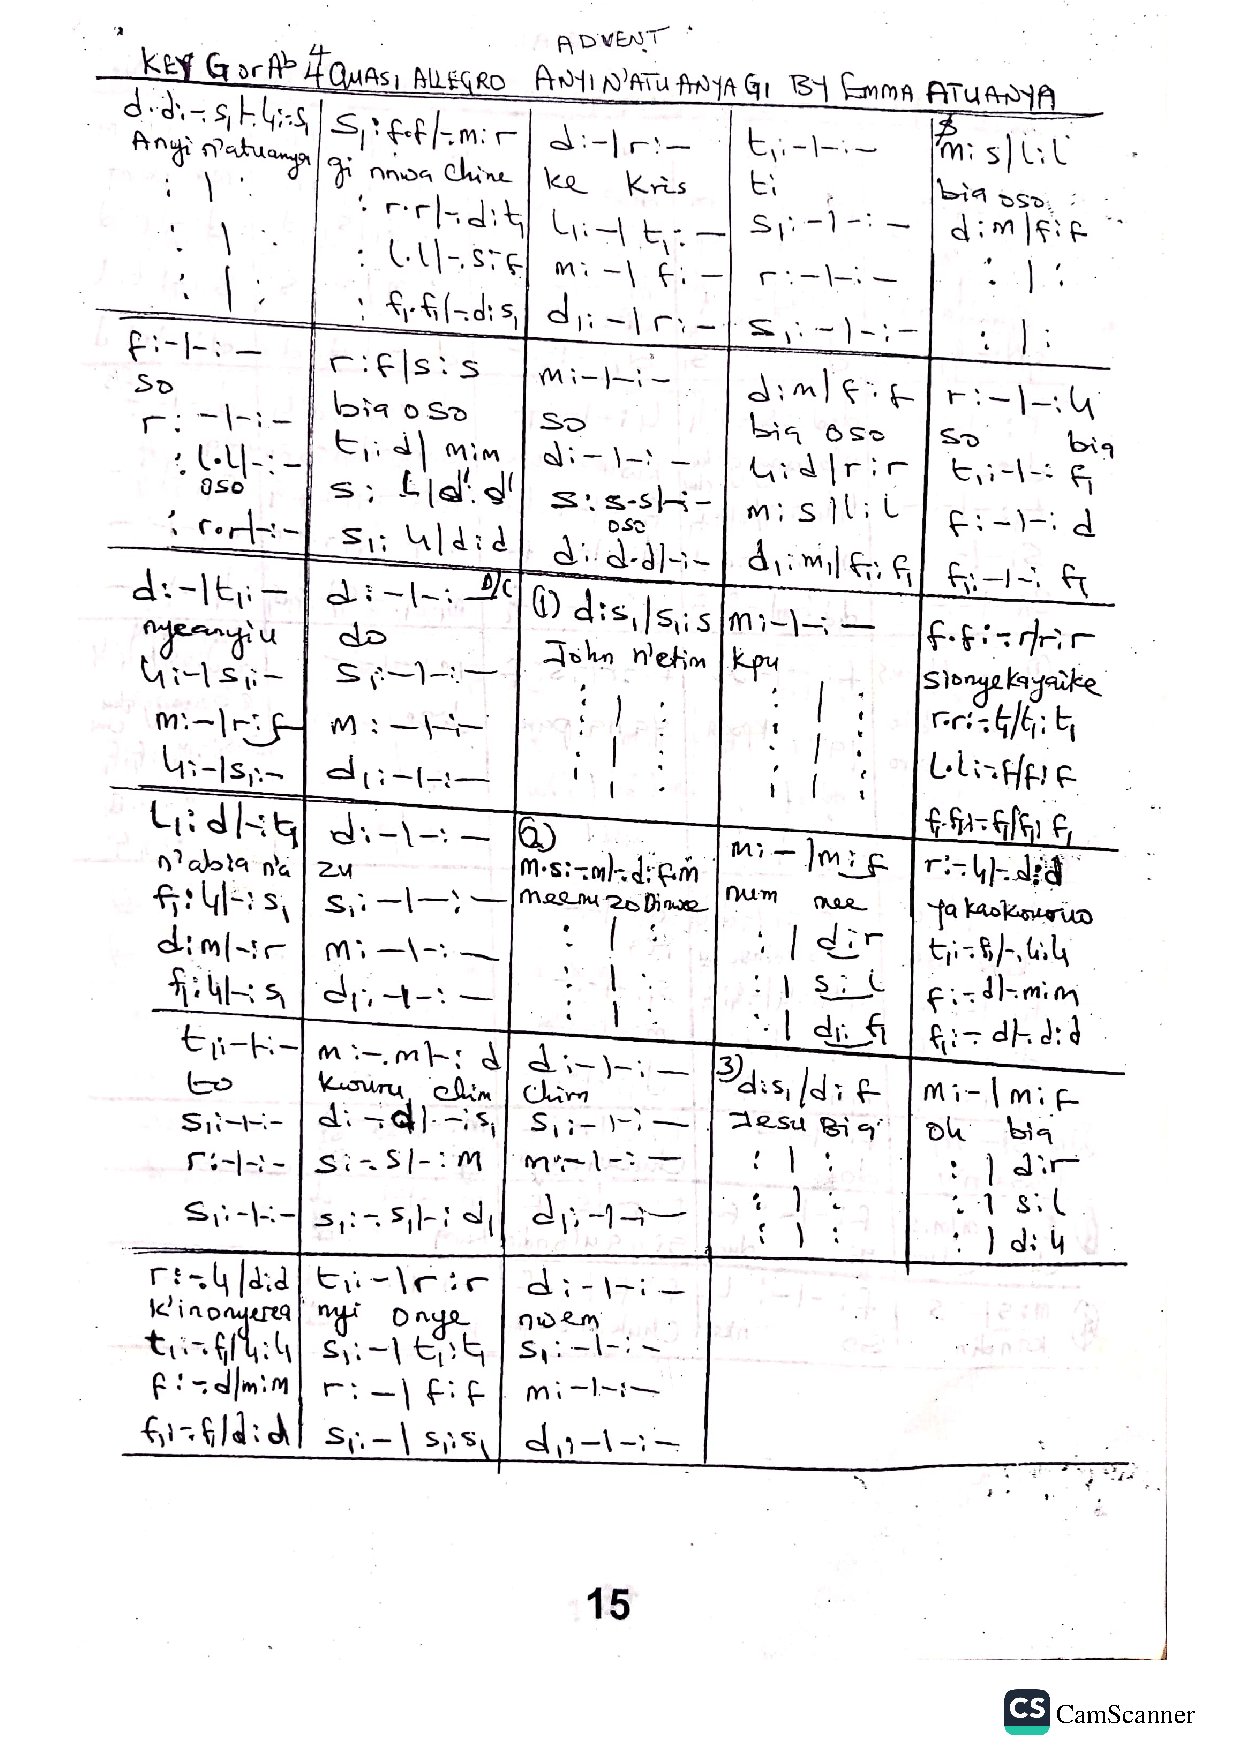 ADVENT
KEY G or Ab 4/4 QUASI ALLEGRO ANYI N'ATU ANYA GI BY EMMA ATUANYA
d.d:-.s₁|-.l₁:-.s₁ | s₁:f.f|-.m:r | d:-|r:- | t₁:-|-:- | m:s|l:l
Anyi n'atuanya | gi nnwa Chine | ke Kris | ti | bia oso
: | : | : r.r|-.d:t₁ | l₁:-|t₁:- | s₁:-|-:- | d:m|f:f
: | : | : l.l|-.s:f | m:-|f:- | r:-|-:- | : | :
: | : | : f₁.f₁|-.d:s₁ | d₁:-|r:- | s₁:-|-:- | : | :
f:-|-:- | r:f|s:s | m:-|-:- | d:m|f:f | r:-|-:l₁
so | bia oso | so | bia oso | so bia
r:-|-:- | t₁:d|m:m | d:-|-:- | l₁:d|r:r | t₁:-|-:f₁
: l.l|-:- | s:l|d':d' | s:s.s|-:- | m:s|l:l | f:-|-:d
oso | oso
: r.r|-:- | s₁:l₁|d:d | d:d.d|-:- | d₁:m₁|f₁:f₁ | f₁:-|-:f₁
d:-|t₁:- | d:-|-:- D/C | (1) d:s₁|s₁:s | m:-|-:- | f.f:-.r|r:r
nyeanyi u | do | John n'etim | kpu | sionyekayaike
l₁:-|s₁:- | s₁:-|-:- | : | : | : | : | r.r:-.t₁|t₁:t₁
m:-|r:f | m:-|-:- | : | : | : | : | l.l:-.f|f:f
l₁:-|s₁:- | d₁:-|-:- | : | : | : | : | f₁.f₁:-.f₁|f₁:f₁
l₁:d|-:t₁ | d:-|-:- | (2) m.s:-.m|-.d:f.m | m:-|m:f | r:-.l₁|-.d:d
n'abia n'a | zu | num nee
f₁:l₁|-:s₁ | s₁:-|-:- | : | : | : | d:r | t₁:-.f₁|-.l₁:l₁
d:m|-:r | m:-|-:- | : | : | : | s:l | f:-.d|-.m:m
f₁:l₁|-:s₁ | d₁:-|-:- | : | : | : | d:f₁ | f₁:-.d|-.d:d
t₁:-|-:- | m:-.m|-:d | d:-|-:- | 3) d:s₁|d:f | m:-|m:f
to | kwuru, chim | Chim | Jesu Bia | Oh bia
s₁:-|-:- | d:-.d|-:s₁ | s₁:-|-:- | : | : | : | d:r
r:-|-:- | s:-.s|-:m | m:-|-:- | : | : | : | s:l
s₁:-|-:- | s₁:-.s₁|-:d₁ | d₁:-|-:- | : | : | : | d:l₁
r:-.l₁|d:d | t₁:-|r:r | d:-|-:-
k'inonyerea | nyi onye | nwem
t₁:-.f₁|l₁:l₁ | s₁:-|t₁:t₁ | s₁:-|-:-
f:-.d|m:m | r:-|f:f | m:-|-:-
f₁:-.f₁|d:d | s₁:-|s₁:s₁ | d₁:-|-:-
15
CS CamScanner